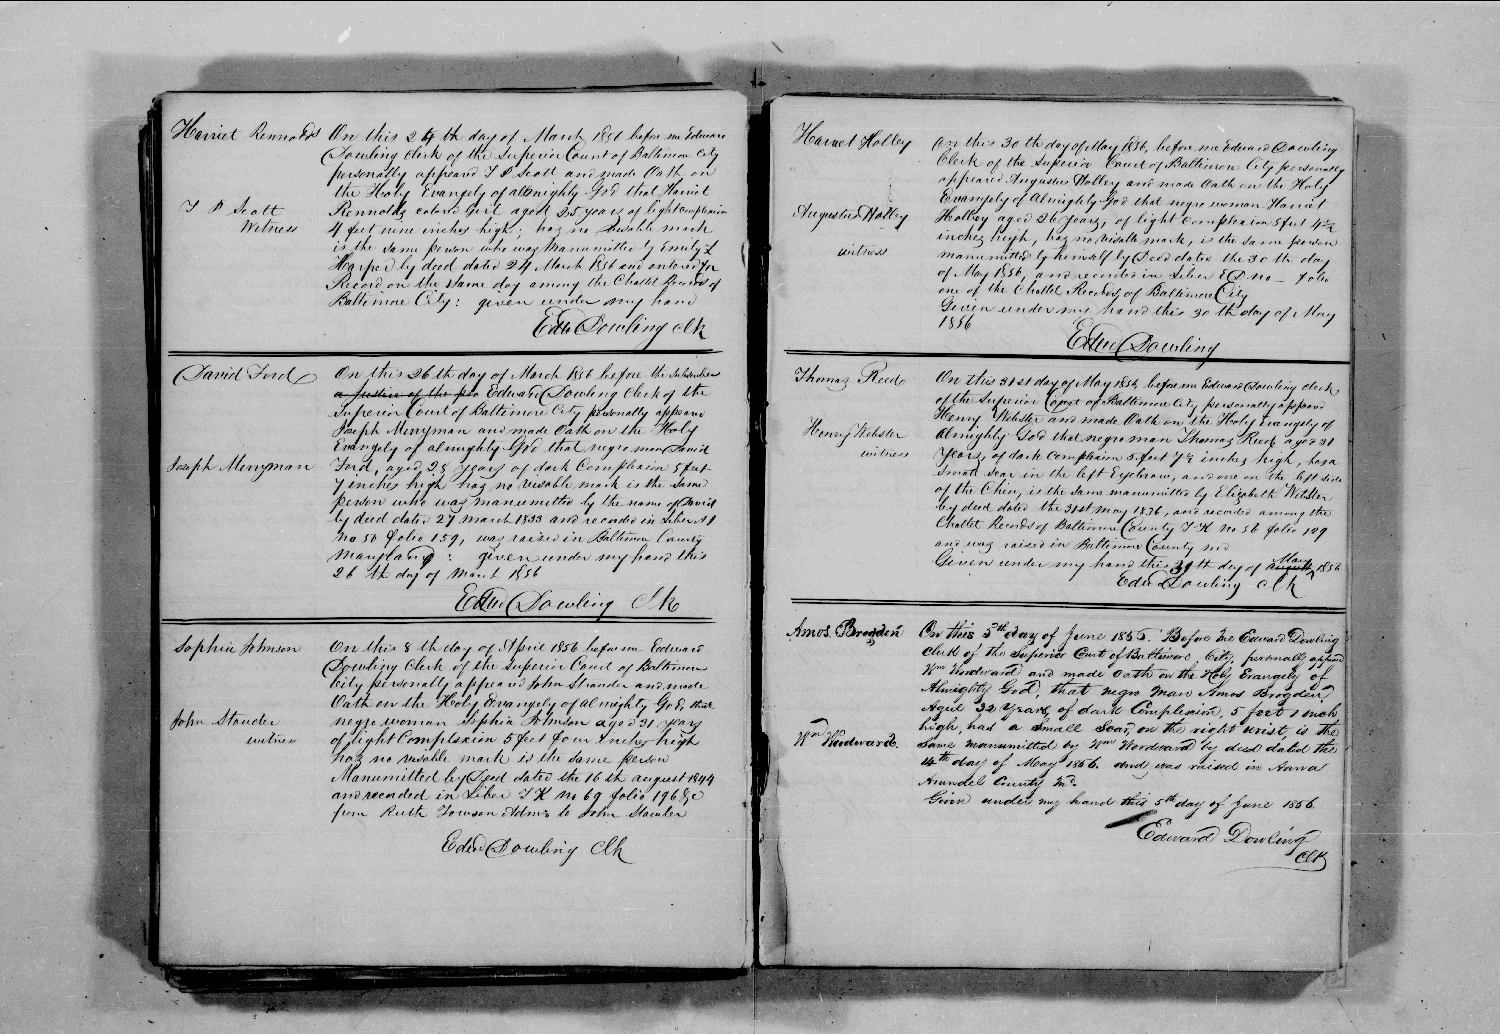 Harriet Rennolds
On this 24th day of March 1856 before me Edward
Dowling Clerk of the Superior Court of Baltimore City
personally appeared T P Scott and made Oath on
the Holy Evangely of almighty God that Harriet
T P Scott
Rennolds colored Girl aged 25 years of light complexion
Witness
4 feet nine inches high; has no visable mark
is the same person who was Manumitted by Emily L
Harper by deed dated 24 March 1856 and entered for
Record on the same day among the Chattel Records of
Baltimore City: given under my hand
Edwd Dowling Clk
David Ford
On this 26th day of March 1856 before the Subscriber
a Justice of the pea Edward Dowling Clerk of the
Superior Court of Baltimore City personally appeared
Joseph Merryman and made Oath on the Holy
Evangely of almighty God that negro man David
Joseph Merryman
Ford, aged 28 years of dark Complexion 5 feet
7 inches high has no visable mark is the same
person who was manumitted by the name of David
by deed dated 27 March 1833 and recorded in Liber
No 50 folio 159, was raised in Baltimore County
Maryland: given under my hand this
26th day of March 1856
Edwd Dowling Clk
Sophia Johnson
On this 8th day of April 1856 before me Edward
Dowling Clerk of the Superior Court of Baltimore
City personally appeared John Stauder and made
Oath on the Holy Evangely of almighty God, that
John Stauder
negro woman Sophia Johnson aged 31 years
witness
of light Complexion 5 feet four Inches high
has no visable mark is the same person
Manumitted by Deed dated the 16th august 1844
and recorded in Liber T K No 69 folio 196 &c
from Ruth Towson Admx to John Stauder
Edwd Dowling Clk
Harriet Holley
On this 30th day of May 1856, before me Edward Dowling
Clerk of the Superior Court of Baltimore City personally
appeared Augustus Holley and made Oath on the Holy
Evangely of Almighty God that negro woman Harriet
Augustus Holley
Holley aged 26 years, of light Complexion 5 feet 4½
witness
inches high, has no visable mark, is the same person
manumitted by himself by Deed dated the 30th day
of May 1856, and recorded in Liber E D no — folio
one of the Chattel Records of Baltimore City
Given under my hand this 30th day of May
1856
Edwd Dowling
Thomas Reed
On this 31st day of May 1856, before me Edward Dowling Clerk
of the Superior Court of Baltimore City personally appeared
Henry Webster and made Oath on the Holy Evangely of
Henry Webster
Almighty God that negro man Thomas Reed aged 31
witness
Years, of dark Complexion 5 feet 7½ inches high, has a
Small Scar in the left Eyebrow, and one on the left side
of the Chin, is the same manumitted by Elizabeth Webster
by deed dated the 31st May 1836, and recorded among the
Chattel Records of Baltimore County T K No 56 folio 109
and was raised in Baltimore County md
Given under my hand this 31 th day of August May 1856
Edwd Dowling Clk
Amos Brogden
On this 5th day of June 1856. Before me Edward Dowling
Clerk of the Superior Court of Baltimore City, personally appeared
Wm Woodward and made Oath on the Holy Evangely of
Almighty God, that negro man Amos Brogden,
Aged 32 Years, of dark Complexion, 5 feet 1 inch
Wm Woodward.
high, has a Small Scar, on the right wrist, is the
Same manumitted by Wm Woodward by deed dated the
14th day of May 1856. and was raised in Anna
Arundel County Md.
Given under my hand this 5th day of June 1856.
Edward Dowling
Clk